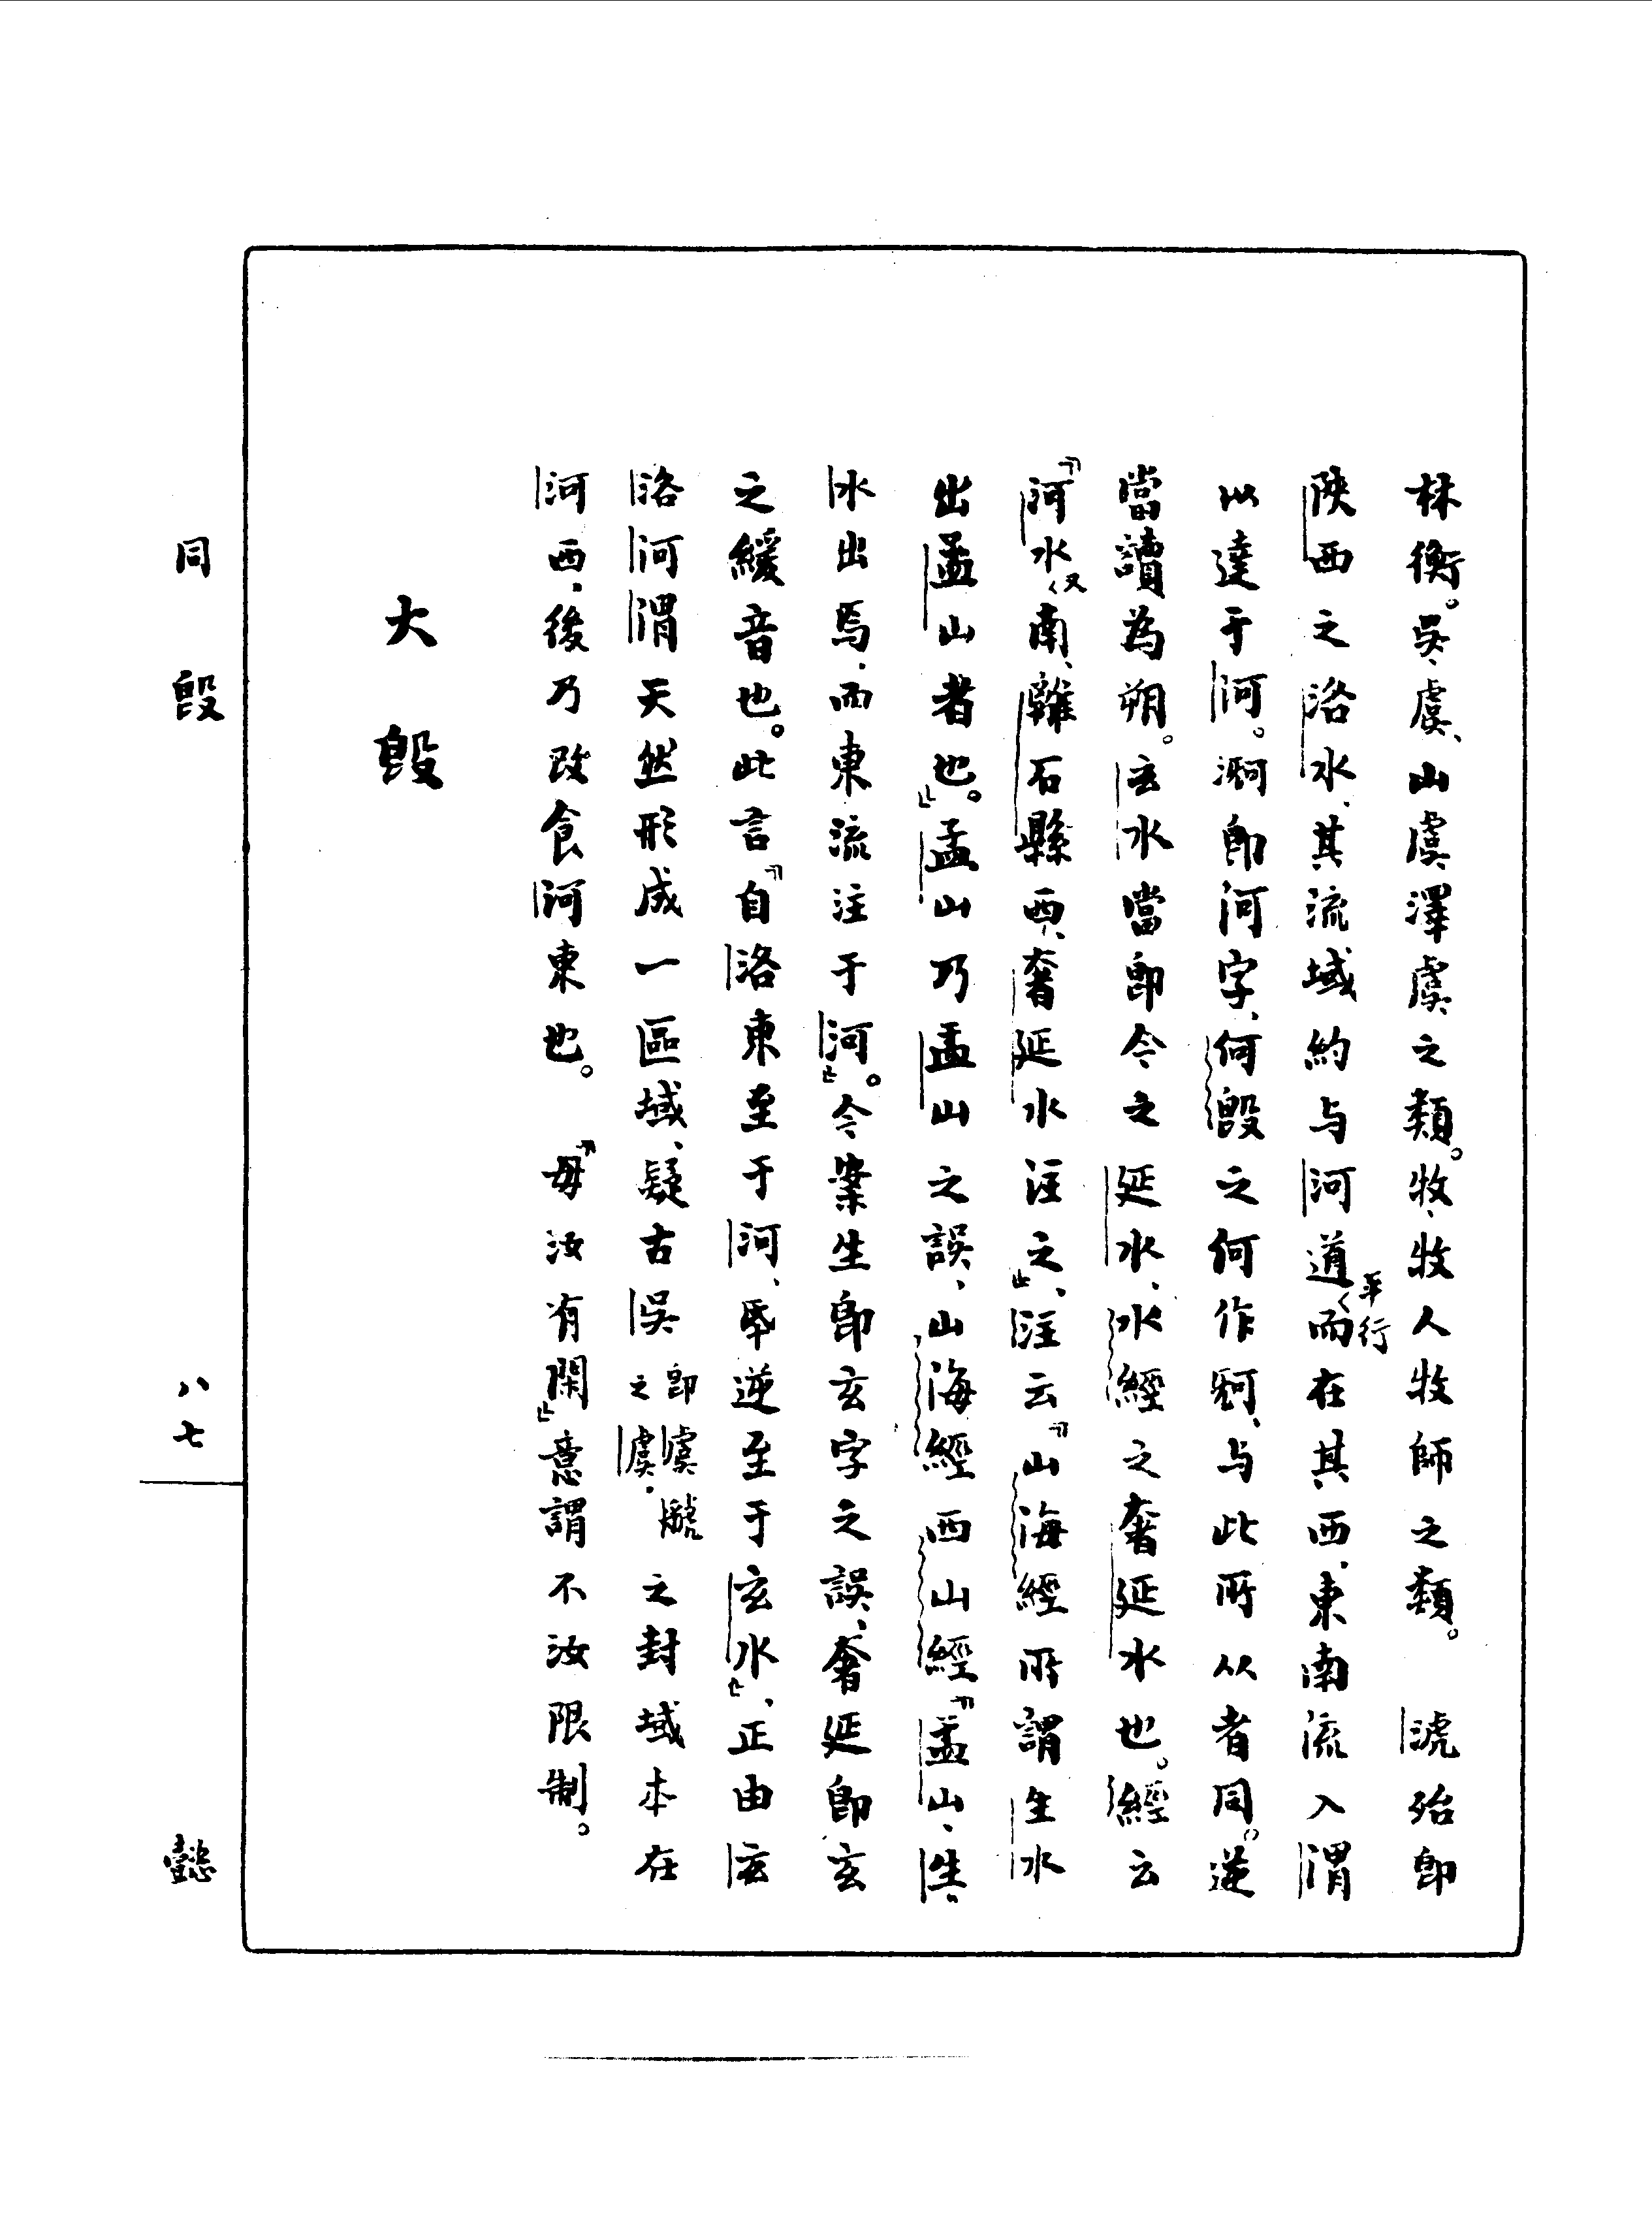 林衡。吳、虞、山虞澤虞之類。牧、牧人牧師之類。　淲殆即
陝西之洛水、其流域約与河道平行而在其西、東南流入渭
以達于河。即河字、何𣪘之何作、与此所从者同。逆
當讀為朔。玄水當即今之延水、水經之奢延水也。經云
「河水又南、離石縣西、奢延水注之」、注云「山海經所謂生水
出孟山者也。」孟山乃盂山之誤、山海經西山經「盂山、生
水出焉、而東流注于河。」今案生即玄字之誤、奢延即玄
之緩音也。此言「自洛東至于河、氒逆至于玄水」、正由玄
洛河渭天然形成一區域、疑古吳即虞虢之虞、之封域本在
河西、後乃改食河東也。　「毋汝有閑」意謂不汝限制。
大𣪘
同𣪘　八七　懿